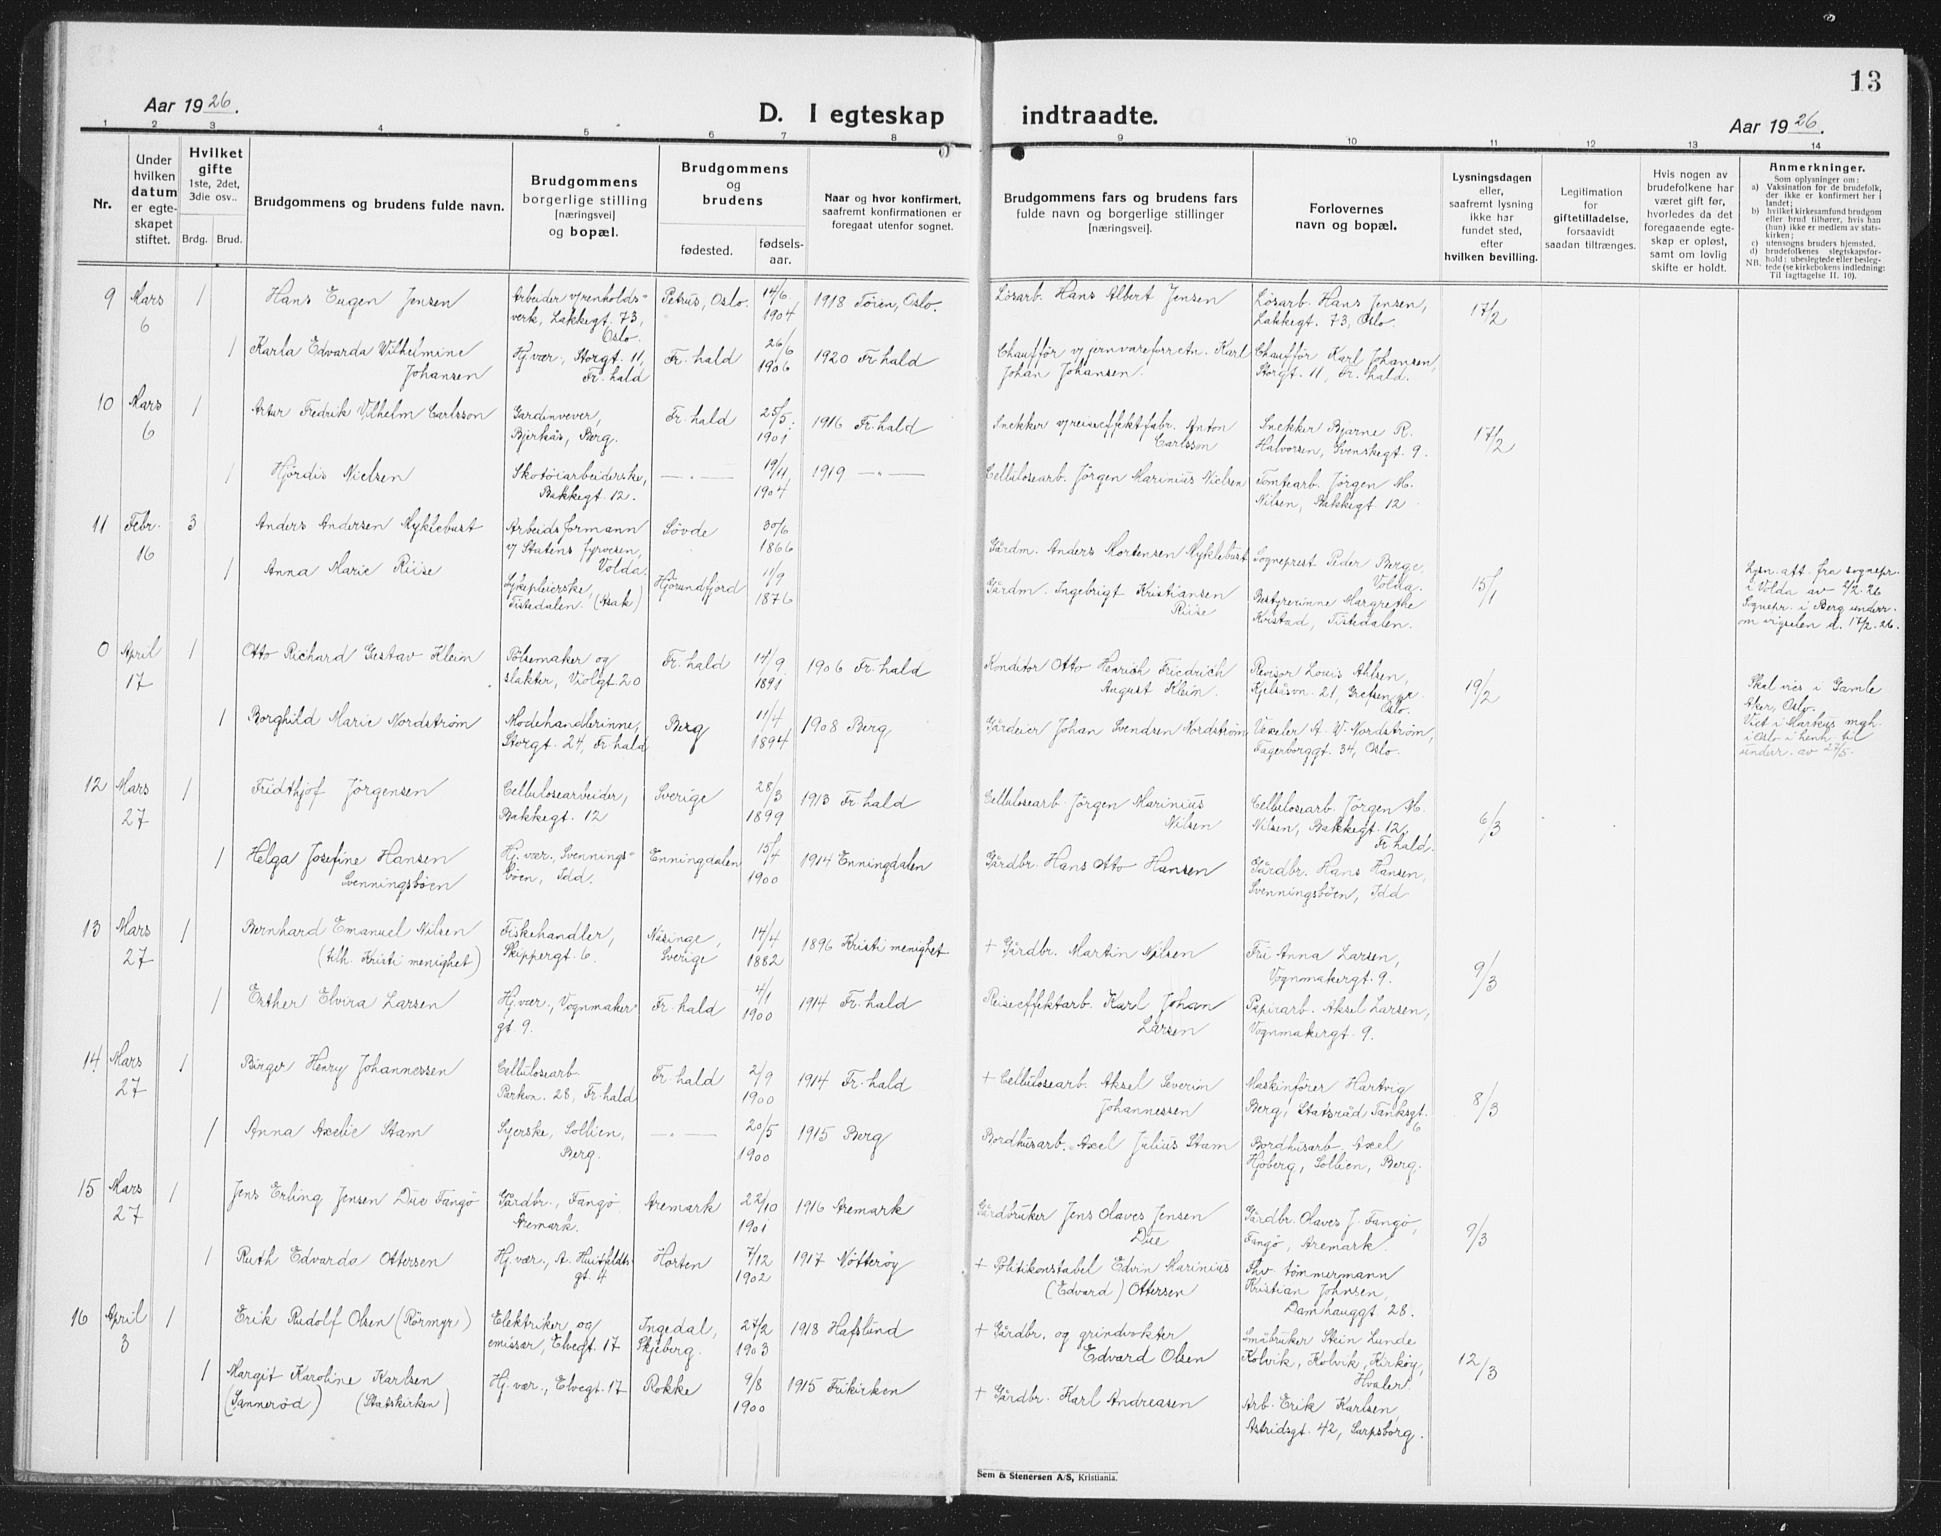 13
Aar 1926.
D. I egteskap indtraadte.
Aar 1926.
1 2 3 4 5 6 7 8 9 10 11 12 13 14
Nr.
Under
hvilken
datum
er egte-
skapet
stiftet.
Hvilket
gifte
1ste, 2det,
3die osv..
Brdg. Brud.
Brudgommens og brudens fulde navn.
Brudgommens
borgerlige stilling
[næringsvei]
og bopæl.
Brudgommens
og
brudens
fødested.
fødsels-
aar.
Naar og hvor konfirmert,
saafremt konfirmationen er
foregaat utenfor sognet.
Brudgommens fars og brudens fars
fulde navn og borgerlige stillinger
[næringsvei].
Forlovernes
navn og bopæl.
Lysningsdagen
eller,
saafremt lysning
ikke har
fundet sted,
efter
hvilken bevilling.
Legitimation
for
giftetilladelse,
forsaavidt
saadan tiltrænges.
Hvis nogen av
brudefolkene har
været gift før,
hvorledes da det
foregaaende egte-
skap er opløst,
samt om lovlig
skifte er holdt.
Anmerkninger.
Som oplysninger om:
a) Vaksination for de brudefolk,
der ikke er konfirmert her i
landet;
b) hvilket kirkesamfund brudgom
eller brud tilhører, hvis han
(hun) ikke er medlem av stats-
kirken;
c) utensogns bruders hjemsted.
d) brudefolkenes slegtskapsfor-
hold: ubeslegtede eller besleg-
NB. tede (se kirkebokens indledning:
Til iagttagelse II. 10).
9 Mars 6 1 Hans Eugen Jensen
Arbeider v/renholds-
verk, Lakkegt. 73,
Oslo.
Petrus, Oslo. 14/6 1904 1918 Tøien, Oslo.
Lösarb. Hans Albert Jensen
Lösarb. Hans Jensen,
Lakkegt. 73, Oslo.
17/2
1 Karla Edvarda Vilhelmine
Johansen
Hj. vær., Storgt. 11,
Fr.hald
Fr.hald 26/6 1906 1920 Fr.hald
Chauffør v/jernvareforretn. Karl
Johan Johansen.
Chauffør Karl Johansen,
Storgt. 11, Fr.hald.
10 Mars 6 1 Artur Fredrik Vilhelm Carlsson
Gardinvever,
Bjerkås, Berg.
Fr.hald 25/5 1901 1916 Fr.hald
Snekker v/reiseeffektfabr. Anton
Carlsson
Snekker Bjarne R.
Halvorsen, Svenskegt. 9.
17/2
1 Hjördis Nielsen
Skotøiarbeiderske,
Bakkegt. 12.
— " — 19/11 1904 1919 — " —
Cellulosearb. Jörgen Marinius Nielsen
Tomtearb. Jörgen M.
Nilsen, Bakkegt. 12.
11 Febr. 16 3 Anders Andersen Myklebust
Arbeidsformann
v/ Statens fyrvesen,
Volda.
Søvde 30/6 1866
Gårdm. Anders Mortensen Myklebust
Sogneprest Peder Berge,
Volda.
15/1
1 Anna Marie Riise
Sykepleierske,
Tistedalen. (Asak)
Hjörundfjord 11/9 1876
Gårdm. Ingebrigt Kristiansen
Riise
Bestyrerinne Margrethe
Kvistad, Tistedalen.
Lysn. att. fra sognepr.
i Volda av 2/2. 26
Sognepr. i Berg underr.
om vigselen d. 17/2. 26.
0 April 17 1 Otto Richard Gustav Klein
Pølsemaker og
slakter, Violgt. 20
Fr.hald 14/9 1891 1906 Fr.hald
Konditor Otto Henrich Friedrich
August Klein.
Revisor Louis Ahlsen,
Kjelsåsvn. 21, Grefsen pr.
Oslo.
19/2
1 Borghild Marie Nordström
Modehandlerinne,
Storgt. 24, Fr.hald
Berg 11/4 1894 1908 Berg
Gårdeier Johan Svendsen Nordström
Vexeler A. W. Nordström,
Fagerborggt. 34, Oslo.
Skal vies i Gamle
Aker, Oslo.
Viet i Markus mgh.
i Oslo i henh. til
underr. av 27/5.
12 Mars 27 1 Fridthjof Jörgensen
Cellulosearbeider,
Bakkegt. 12
Sverige 28/3 1899 1913 Fr.hald
Cellulosearb. Jörgen Marinius
Nilsen
Cellulosearb. Jörgen M.
Nilsen, Bakkegt. 12,
Fr.hald.
6/3
1 Helga Josefine Hansen
Svenningsböen
Hj. vær., Svennings-
böen, Idd.
Enningdalen 15/4 1900 1914 Enningdalen
Gårdbr. Hans Otto Hansen
Gårdbr. Hans Hansen,
Svenningsböen, Idd
13 Mars 27 1 Bernhard Emanuel Nilsen
(tilh. Kristi menighet)
Fiskehandler,
Skippergt. 6.
Näsinge,
Sverige
14/4 1882 1896 Kristi menighet
+ Gårdbr. Martin Nilsen
Fru Anna Larsen,
Vognmakergt. 9.
9/3
1 Esther Elvira Larsen
Hj. vær., Vognmaker
gt. 9.
Fr.hald 4/1 1900 1914 Fr.hald
Reiseeffektarb. Karl Johan
Larsen
Papirarb. Aksel Larsen,
Vognmakergt. 9.
14 Mars 27 1 Birger Henry Johannessen
Cellulosearb.
Parkvn. 28, Fr.hald
Fr.hald 2/9 1900 1914 Fr.hald
+ Cellulosearb. Aksel Severin
Johannessen
Maskinfører Hartvig
Berg, Statsråd Tanksgt.
6
8/3
1 Anna Axelie Stam
Syerske, Sollien,
Berg.
— " — 20/5 1900 1915 Berg
Bordhusarb. Axel Julius Stam
Bordhusarb. Axel
Hjoberg, Sollien, Berg.
15 Mars 27 1 Jens Erling Jensen Due Fangø
Gårdbr., Fangø,
Aremark.
Aremark 22/10 1901 1916 Aremark
Gårdbruker Jens Olaves Jensen
Due
Gårdbr. Olaves J. Fangø,
Fangø, Aremark.
9/3
1 Ruth Edvarda Ottersen
Hj. vær., A. Huitfeldts-
gt. 4
Horten 7/12 1902 1917 Nötteröy
+ Politikonstabel Edvin Marinius
(Edvard) Ottersen
Fhv. tömmermann
Kristian Johnsen,
Damhauggt. 28.
16 April 3 1 Erik Rudolf Olsen (Rörmyr)
Elektriker og
emissær, Elvegt. 17
Ingedal,
Skjeberg.
27/2 1903 1918 Hafslund
+ Gårdbr. og grindvokter
Edvard Olsen
Småbruker Stein Lunde
Kolvik, Kolvik, Kirköy,
Hvaler.
12/3
1 Margit Karoline Karlsen
(Sannerød) (Statskirken)
Hj. vær., Elvegt. 17
Rokke 9/8 1900 1915 Frikirken
+ Gårdbr. Karl Andreasen
Arb. Erik Karlsen
Astridsgt. 42, Sarpsborg.
Sem & Stenersen A/S, Kristiania.